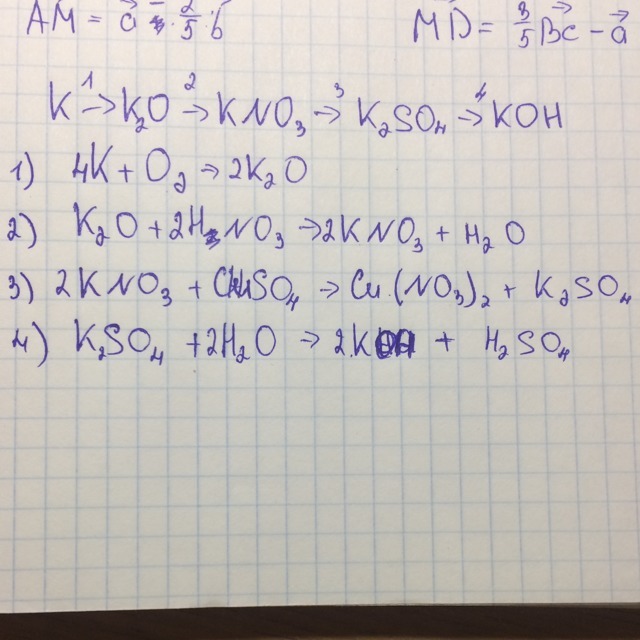 AM = a - 2/5 b
MD = 3/5 BC - a
K →¹ K₂O →² KNO₃ →³ K₂SO₄ →⁴ KOH
1) 4K + O₂ → 2K₂O
2) K₂O + 2HNO₃ → 2KNO₃ + H₂O
3) 2KNO₃ + CuSO₄ → Cu(NO₃)₂ + K₂SO₄
4) K₂SO₄ + 2H₂O → 2KOH + H₂SO₄